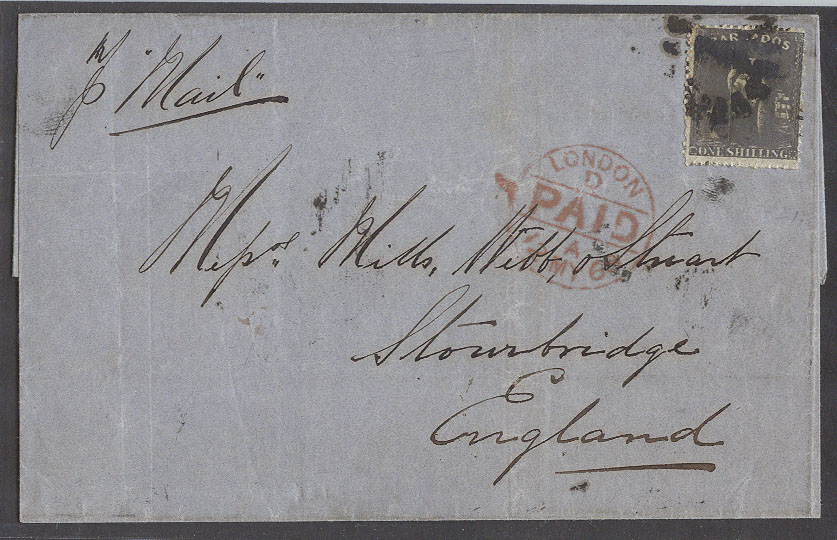 p "Mail"
BARBADOS
ONE SHILLING
LONDON
D
PAID
A
MY 6
Messrs Mills, Webb, & Stuart
Stourbridge
England